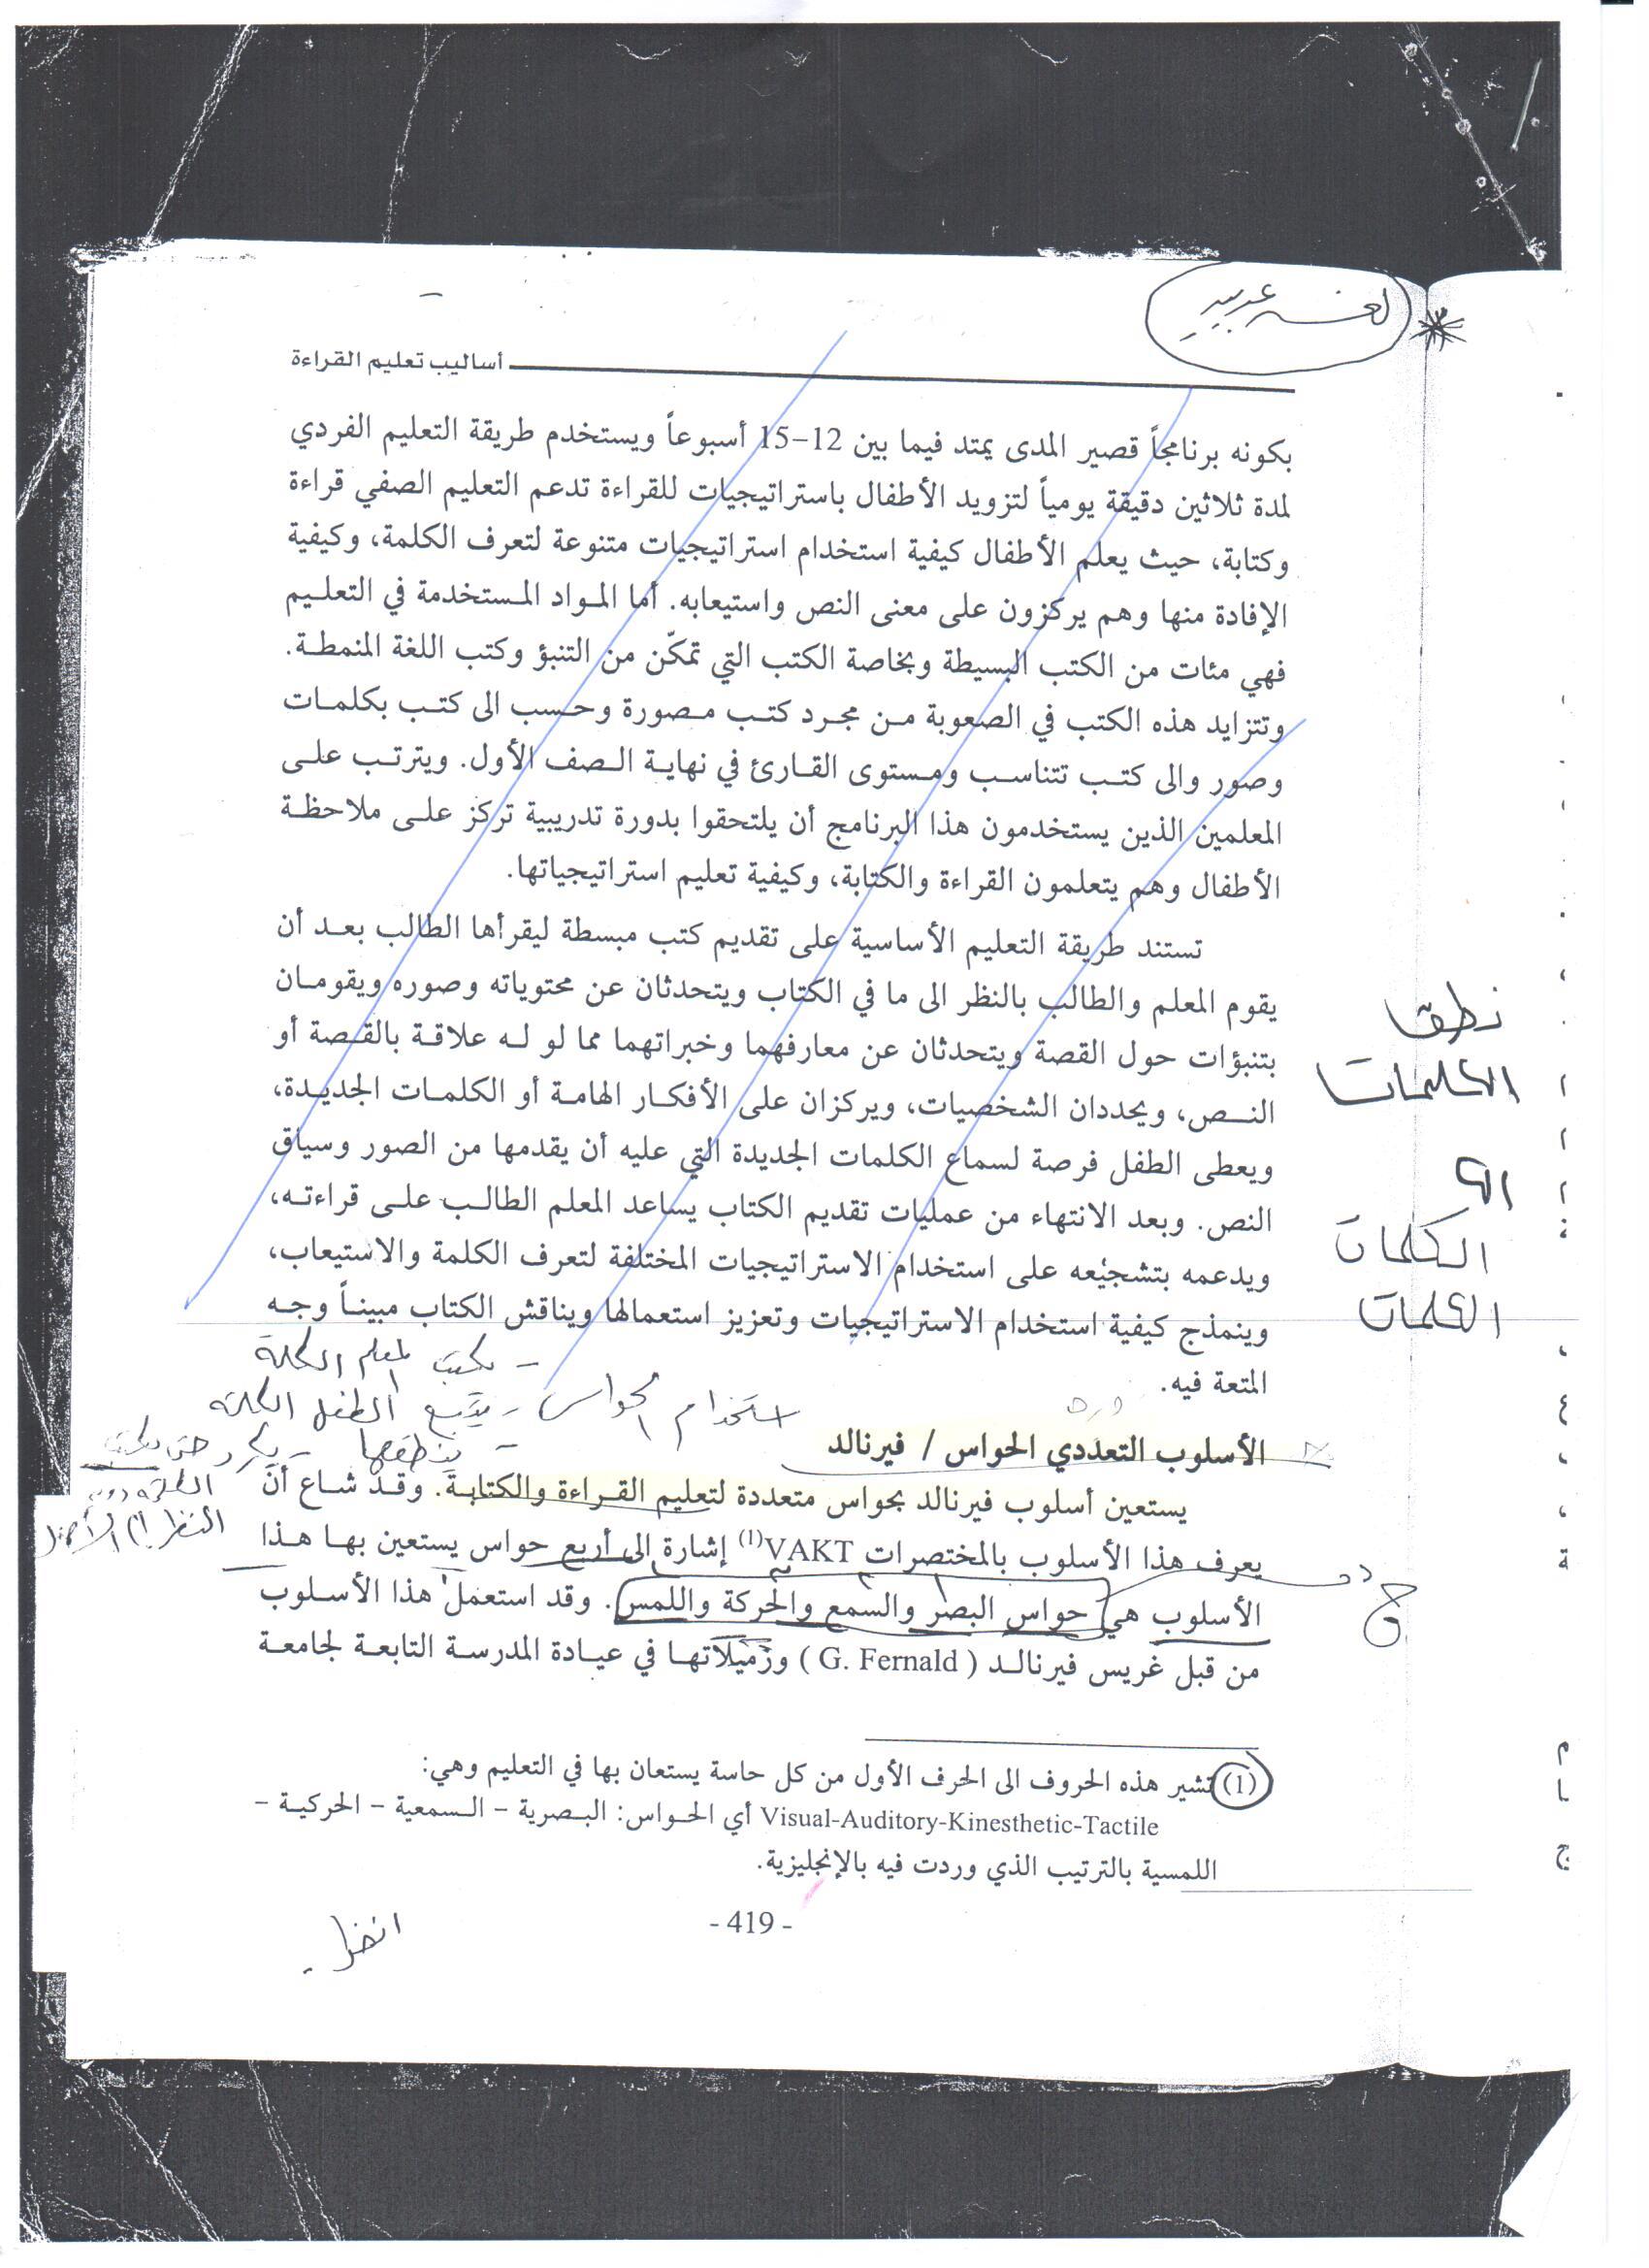 لغة عربية
أساليب تعليم القراءة
بكونه برنامجاً قصير المدى يمتد فيما بين 12–15 أسبوعاً ويستخدم طريقة التعليم الفردي
لمدة ثلاثين دقيقة يومياً لتزويد الأطفال باستراتيجيات للقراءة تدعم التعليم الصفي قراءة
وكتابة، حيث يعلم الأطفال كيفية استخدام استراتيجيات متنوعة لتعرف الكلمة، وكيفية
الإفادة منها وهم يركزون على معنى النص واستيعابه. أما المواد المستخدمة في التعليم
فهي مئات من الكتب البسيطة وبخاصة الكتب التي تمكّن من التنبؤ وكتب اللغة المنمطة.
وتتزايد هذه الكتب في الصعوبة من مجرد كتب مصورة وحسب الى كتب بكلمات
وصور والى كتب تتناسب ومستوى القارئ في نهاية الصف الأول. ويترتب على
المعلمين الذين يستخدمون هذا البرنامج أن يلتحقوا بدورة تدريبية تركز على ملاحظة
الأطفال وهم يتعلمون القراءة والكتابة، وكيفية تعليم استراتيجياتها.
تستند طريقة التعليم الأساسية على تقديم كتب مبسطة ليقرأها الطالب بعد أن
يقوم المعلم والطالب بالنظر الى ما في الكتاب ويتحدثان عن محتوياته وصوره ويقومان
بتنبؤات حول القصة ويتحدثان عن معارفهما وخبراتهما مما لو له علاقة بالقصة أو
النص، ويحددان الشخصيات، ويركزان على الأفكار الهامة أو الكلمات الجديدة،
ويعطى الطفل فرصة لسماع الكلمات الجديدة التي عليه أن يقدمها من الصور وسياق
النص. وبعد الانتهاء من عمليات تقديم الكتاب يساعد المعلم الطالب على قراءته،
ويدعمه بتشجيعه على استخدام الاستراتيجيات المختلفة لتعرف الكلمة والاستيعاب،
وينمذج كيفية استخدام الاستراتيجيات وتعزيز استعمالها ويناقش الكتاب مبيناً وجه
المتعة فيه.
نطق
الكلمات
الك
الكلمات
الكلمات
– يكتب المعلم الكلمة
استخدام الحواس – يتتبع الطفل الكلمة
– ينطقها – يكرر حتى يكتب
الكلمة دون
النظر الى الأصل
الأسلوب التعددي الحواس / فيرنالد
يستعين أسلوب فيرنالد بحواس متعددة لتعليم القراءة والكتابة. وقد شاع أن
يعرف هذا الأسلوب بالمختصرات VAKT(1) إشارة الى أربع حواس يستعين بها هذا
الأسلوب هي حواس البصر والسمع والحركة واللمس. وقد استعمل هذا الأسلوب
من قبل غريس فيرنالد ( G. Fernald ) وزميلاتها في عيادة المدرسة التابعة لجامعة
(1) تشير هذه الحروف الى الحرف الأول من كل حاسة يستعان بها في التعليم وهي:
Visual-Auditory-Kinesthetic-Tactile أي الحواس: البصرية – السمعية – الحركية –
اللمسية بالترتيب الذي وردت فيه بالإنجليزية.
- 419 -